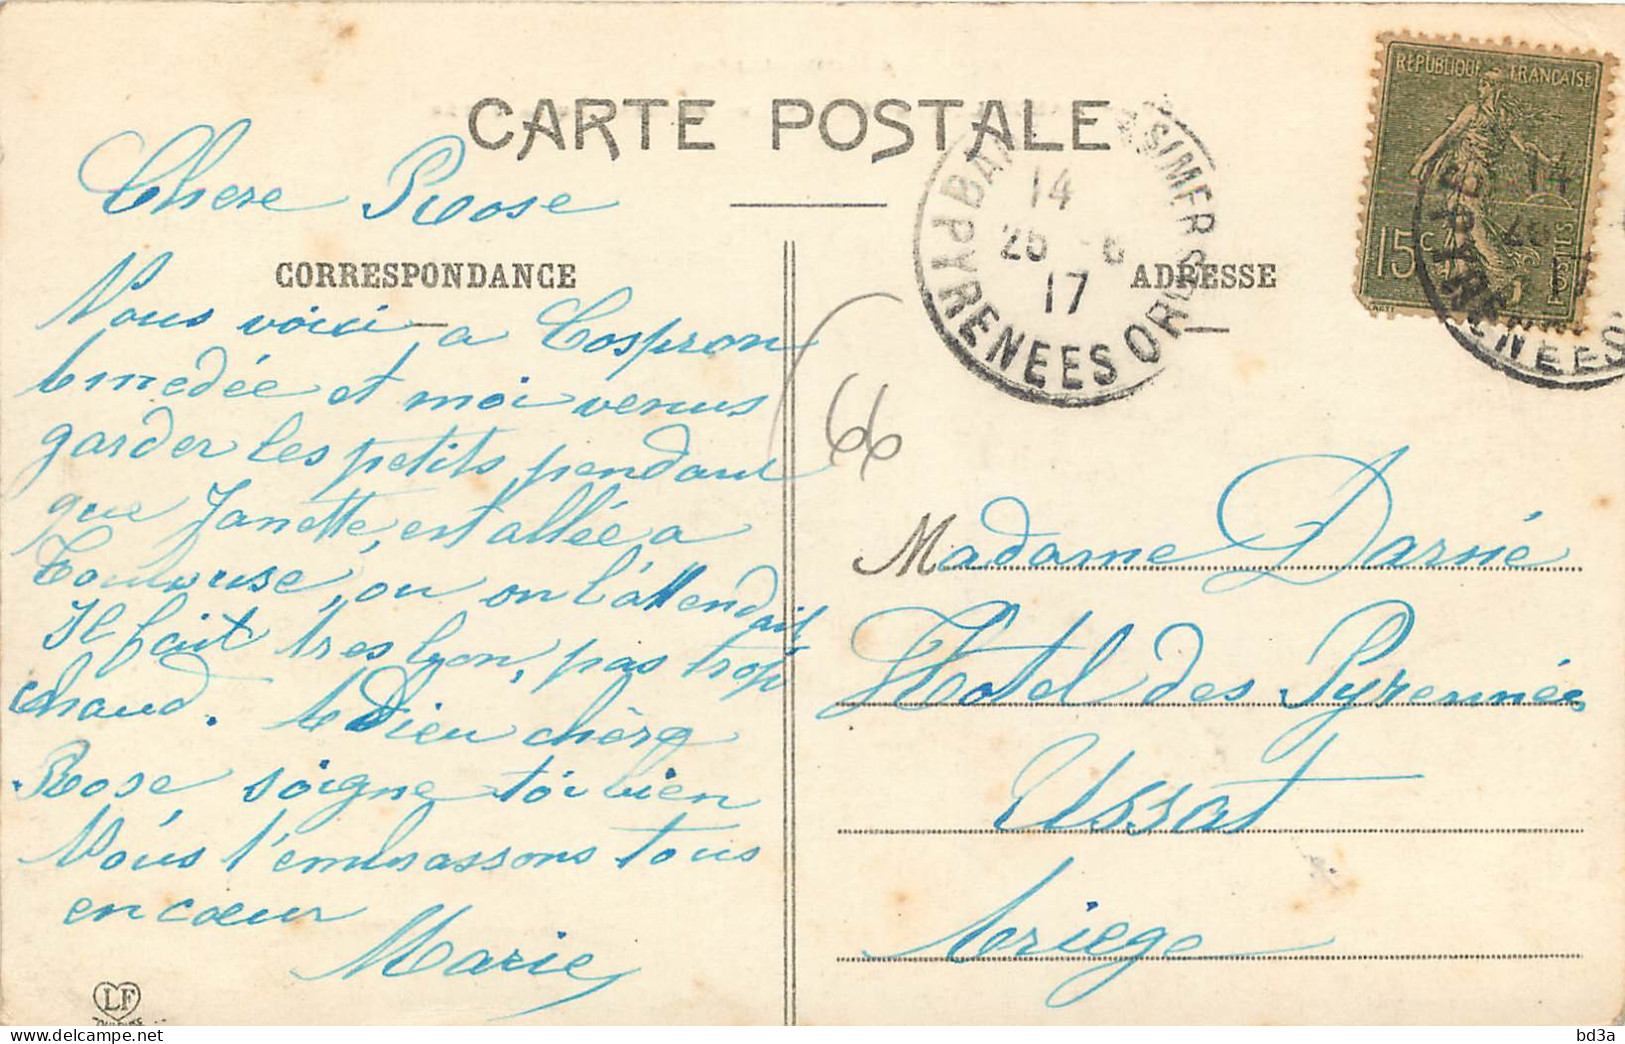 CARTE POSTALE
CORRESPONDANCE
ADRESSE
RÉPUBLIQUE FRANÇAISE
15c
POSTES
14
25 -6
17
PYRENEES ORles
14
PYRENEES
66
Chere Rose
Nous voici a Cosprons
Amedée et moi venus
garder les petits pendant
que Janette, est allée a
Toulouse, ou on l'attendait
Il fait tres bon, pas trop
chaud. Adieu chère
Rose soigne toi bien
Nous t'embrassons tous
en cœur
Marie
Madame Darné
Hotel des Pyrennées
Ussat
Ariege
LF
bd3a